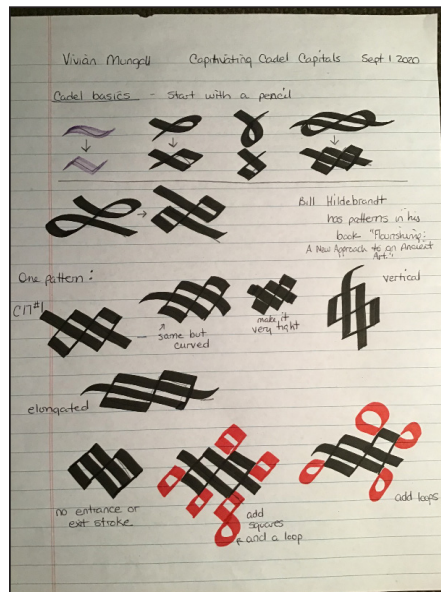 Vivian Mungall Captivating Cadel Capitals Sept 1 2020
Cadel basics - start with a pencil
Bill Hildebrandt
has patterns in his
book "Flourishing:
A New Approach to an Ancient
Art."
One pattern:
C17#1
same but
curved
make it
very tight
vertical
elongated
no entrance or
exit stroke
add
squares
and a loop
add loops